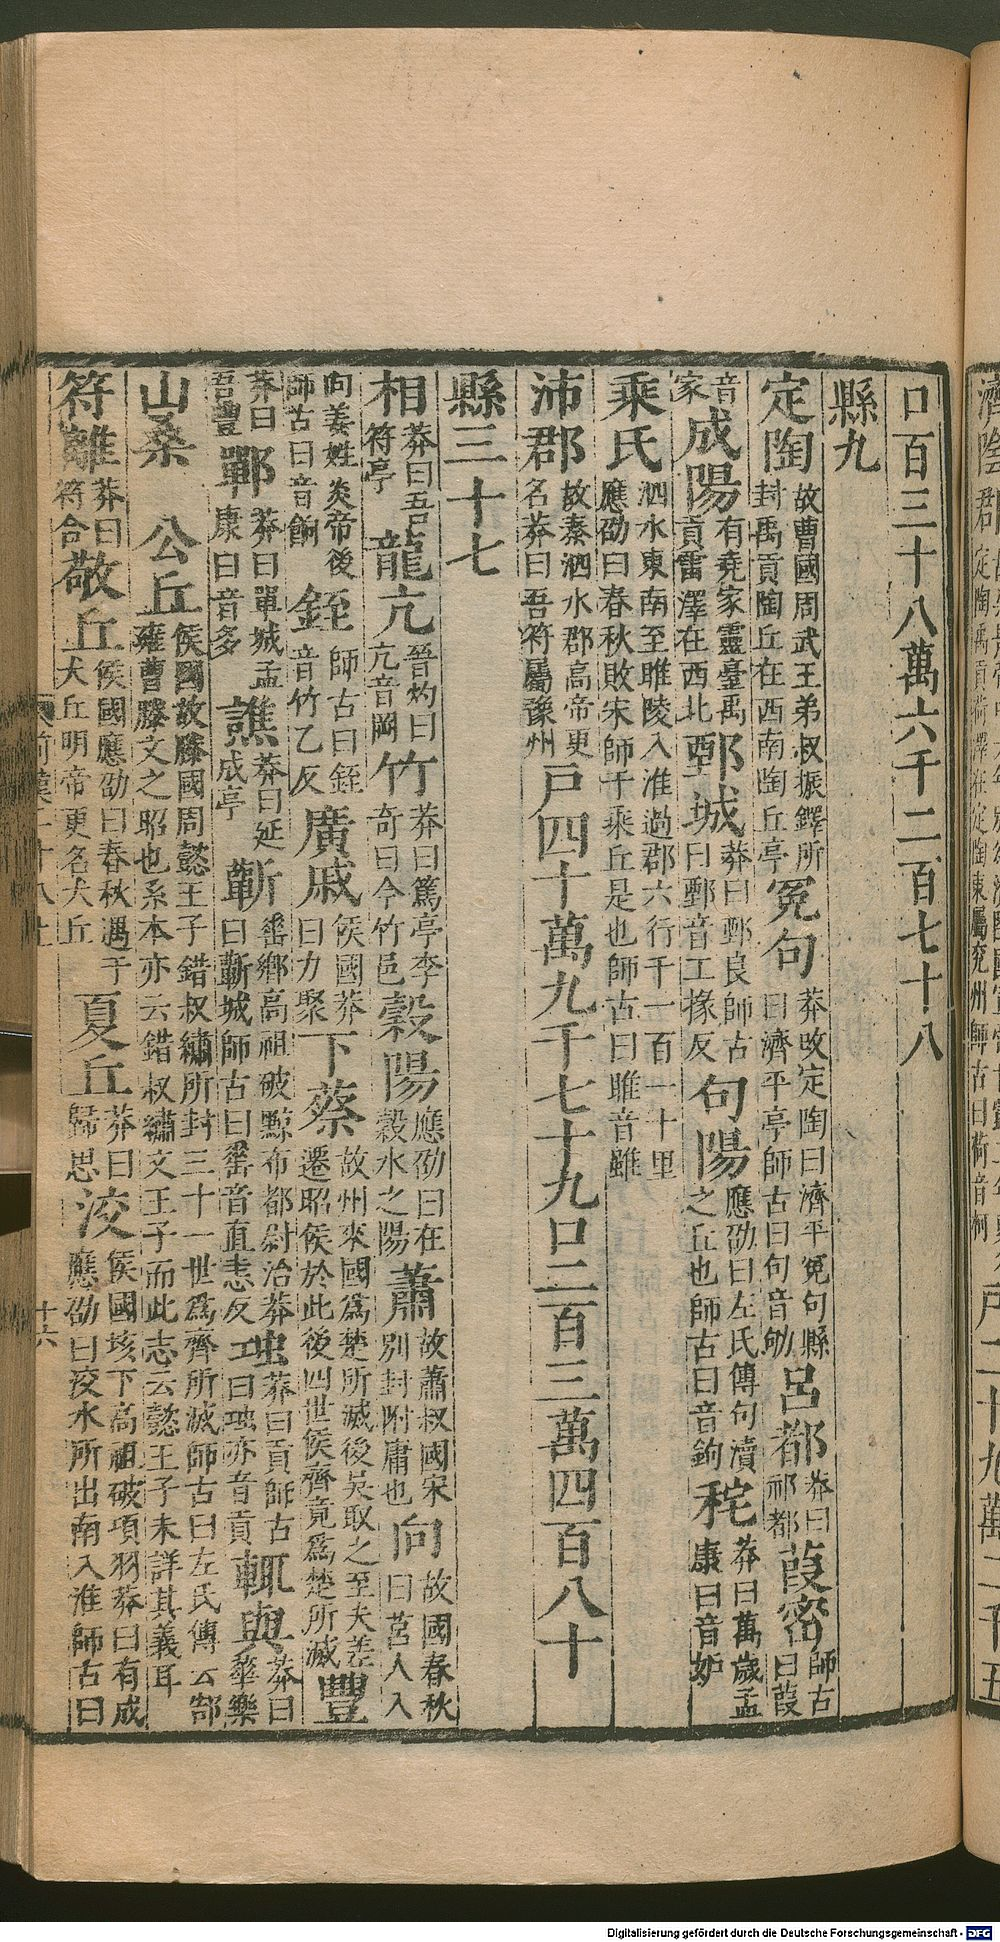 定陶禹貢荷澤在定陶東屬兗州師古曰荷音柯戶二十九萬二千五
口百三十八萬六千二百七十八
縣九
定陶故曹國周武王弟叔振鐸所封禹貢陶丘在西南陶丘亭冤句莽改定陶曰濟平冤句縣曰濟平亭師古曰句音劬呂都莽曰祁都葭密師古曰葭
音家成陽有堯冢靈臺禹貢雷澤在西北鄄城莽曰鄄良師古曰鄄音工掾反句陽應劭曰左氏傳句瀆之丘也師古曰音鉤秺莽曰萬歲孟康曰音妒
乘氏泗水東南至睢陵入淮過郡六行千一百一十里應劭曰春秋敗宋師于乘丘是也師古曰睢音雖
沛郡故秦泗水郡高帝更名莽曰吾符屬豫州戶四十萬九千七十九口二百三萬四百八十
縣三十七
相莽曰吾符亭龍亢晉灼曰亢音岡竹莽曰篤亭李奇曰今竹邑穀陽應劭曰在穀水之陽蕭故蕭叔國宋別封附庸也向故國春秋曰莒人入
向姜姓炎帝後師古曰音餉銍師古曰銍音竹乙反廣戚侯國莽曰力聚下蔡故州來國爲楚所滅後吳取之至夫差遷昭侯於此後四世侯齊竟爲楚所滅豐
莽曰吾豐鄲莽曰單城孟康曰音多譙莽曰延成亭蘄𡍮鄉高祖破黥布都尉治莽曰蘄城師古曰𡍮音直恚反𧈫莽曰貢師古曰𧈫亦音貢輒與莽曰華樂
山桑公丘侯國故滕國周懿王子錯叔繡所封三十一世爲齊所滅師古曰左氏傳云郜雍曹滕文之昭也系本亦云錯叔繡文王子而此志云懿王子未詳其義耳
符離莽曰符合敬丘侯國應劭曰春秋遇于犬丘明帝更名犬丘夏丘莽曰歸思洨侯國垓下高祖破項羽莽曰有成應劭曰洨水所出南入淮師古曰
前漢二十八上 十六
Digitalisierung gefördert durch die Deutsche Forschungsgemeinschaft - DFG